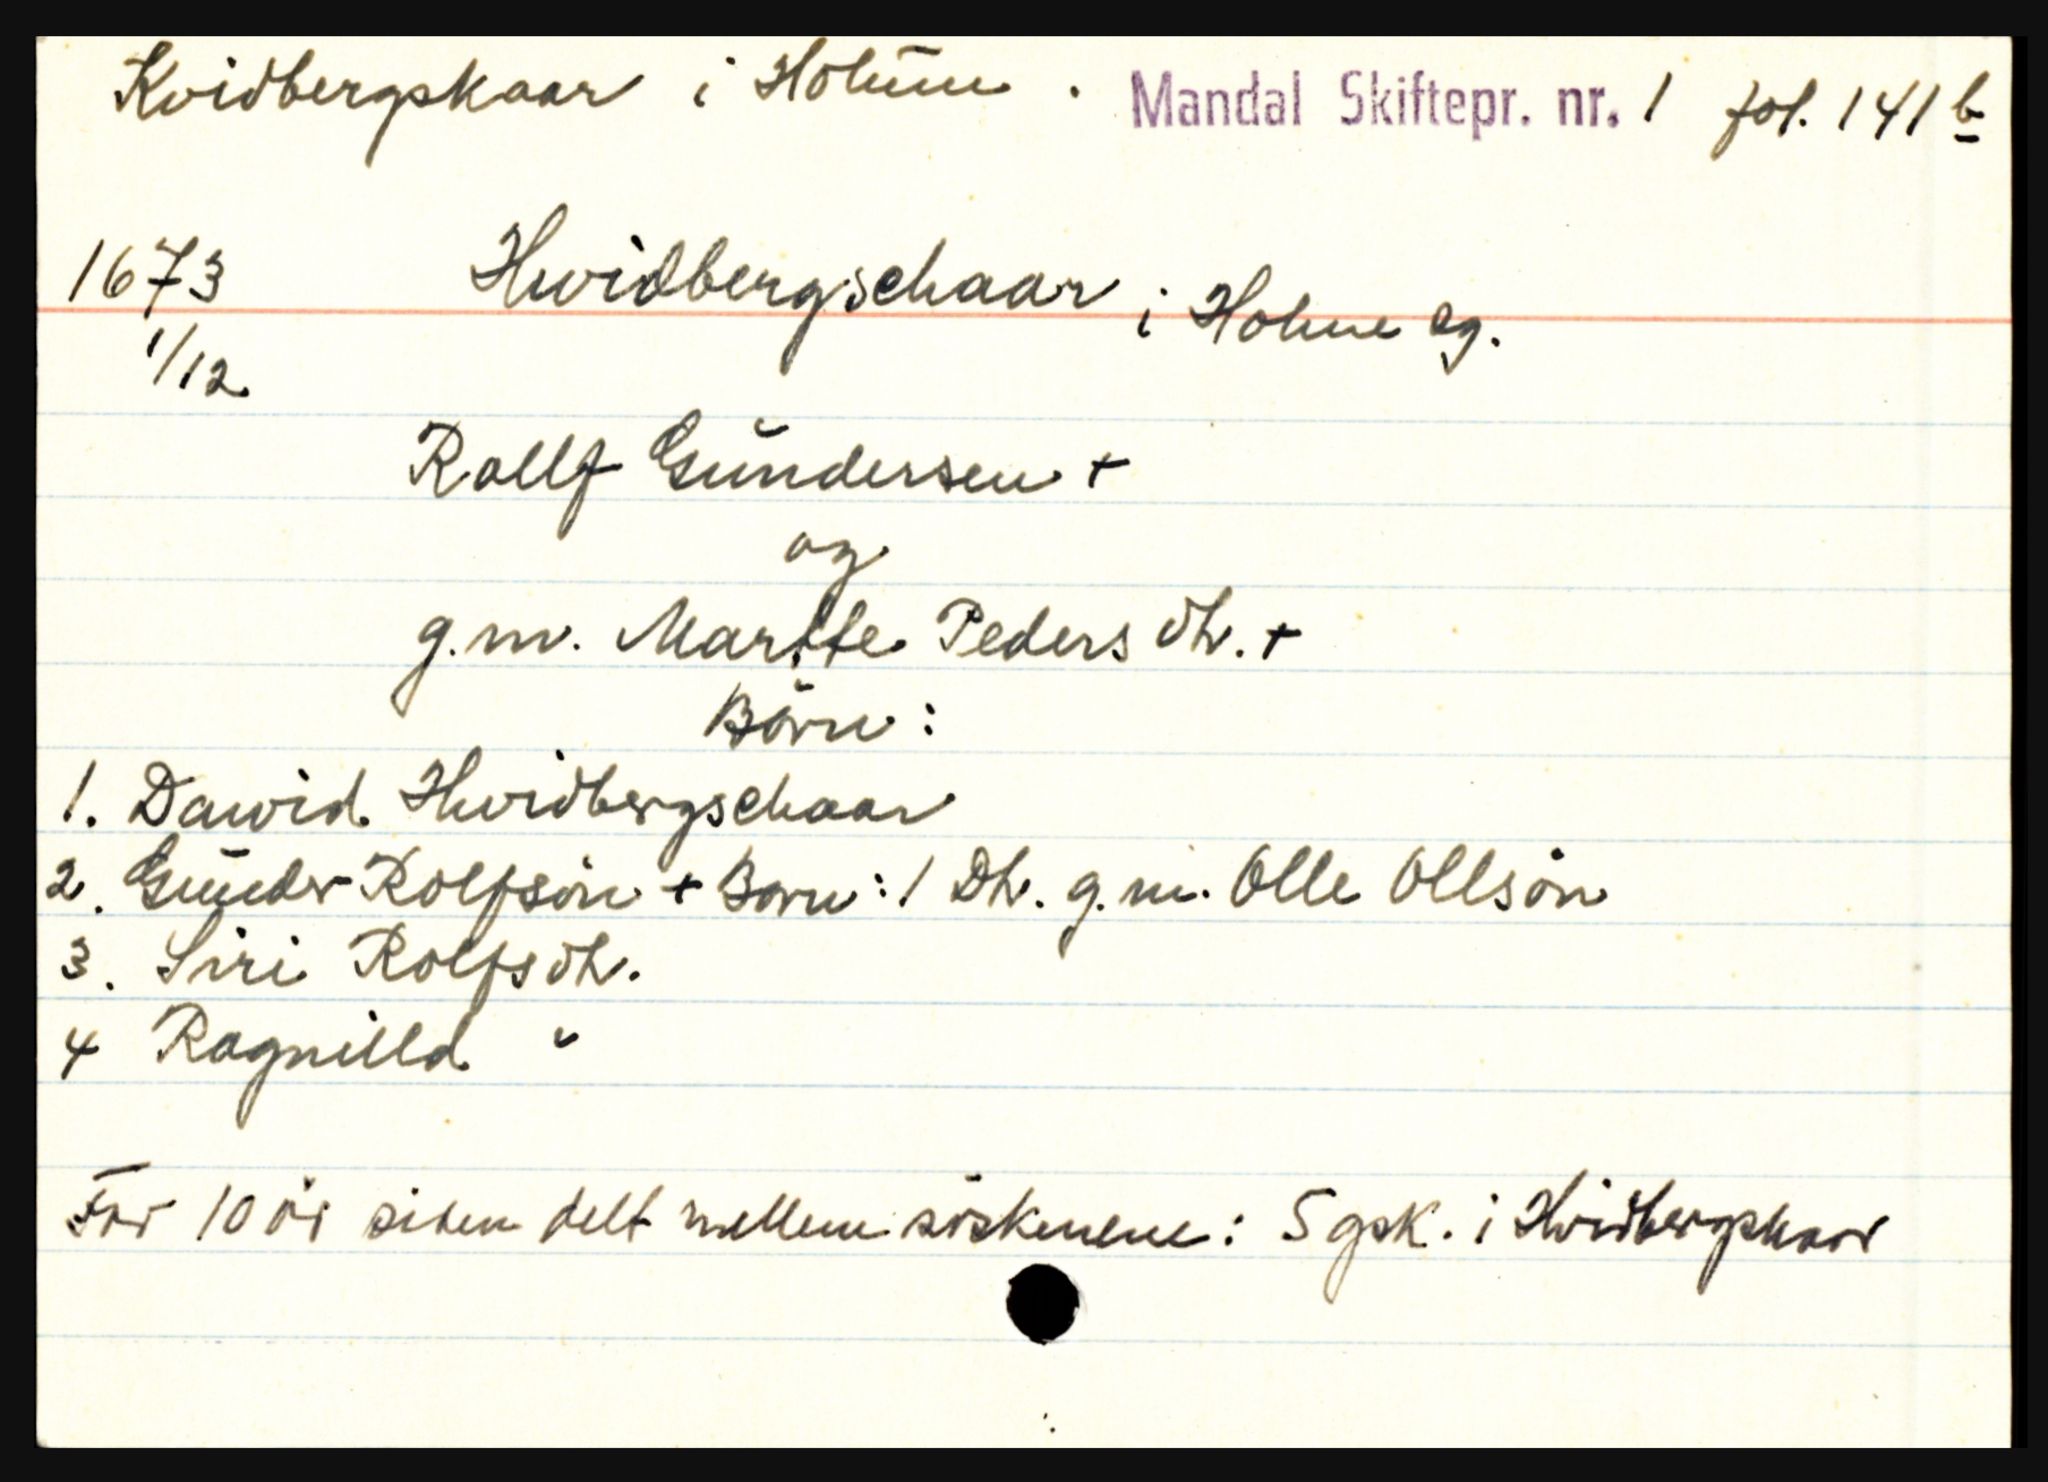 Kvidbergskaar i Holum. Mandal Skiftepr. nr. 1 fol. 141 b
1673 Hvidbergschaar i Holme sg.
1/12
Rollf Gundersen +
og
g.m. Martte Peders dtr. +
Börn:
1. Dawid Hvidbergschaar
2. Gunder Rolfsön + Born: 1 Dtr. g.m. Olle Ollsön
3. Siri Rolfsdtr.
4 Ragnilld "
For 10 år siden delt mellem söskenene: 5 gsk. i Hvidbergskaar